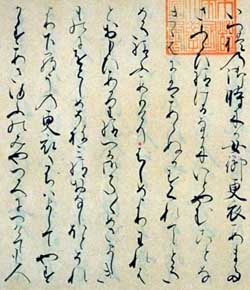 いつれの御時にか女御更衣あまた
さふらひ給けるなかにいとやむことな
きゝはにはあらぬかすくれてとき
めき給ふありけりはしめよりわれは
とおもひあかり給へる御かた／＼めさましき
ものにおとしめそねみ給おなしほとそれ
より下らうの更衣たちはましてやす
からすあさゆふのみやつかへにつけても人